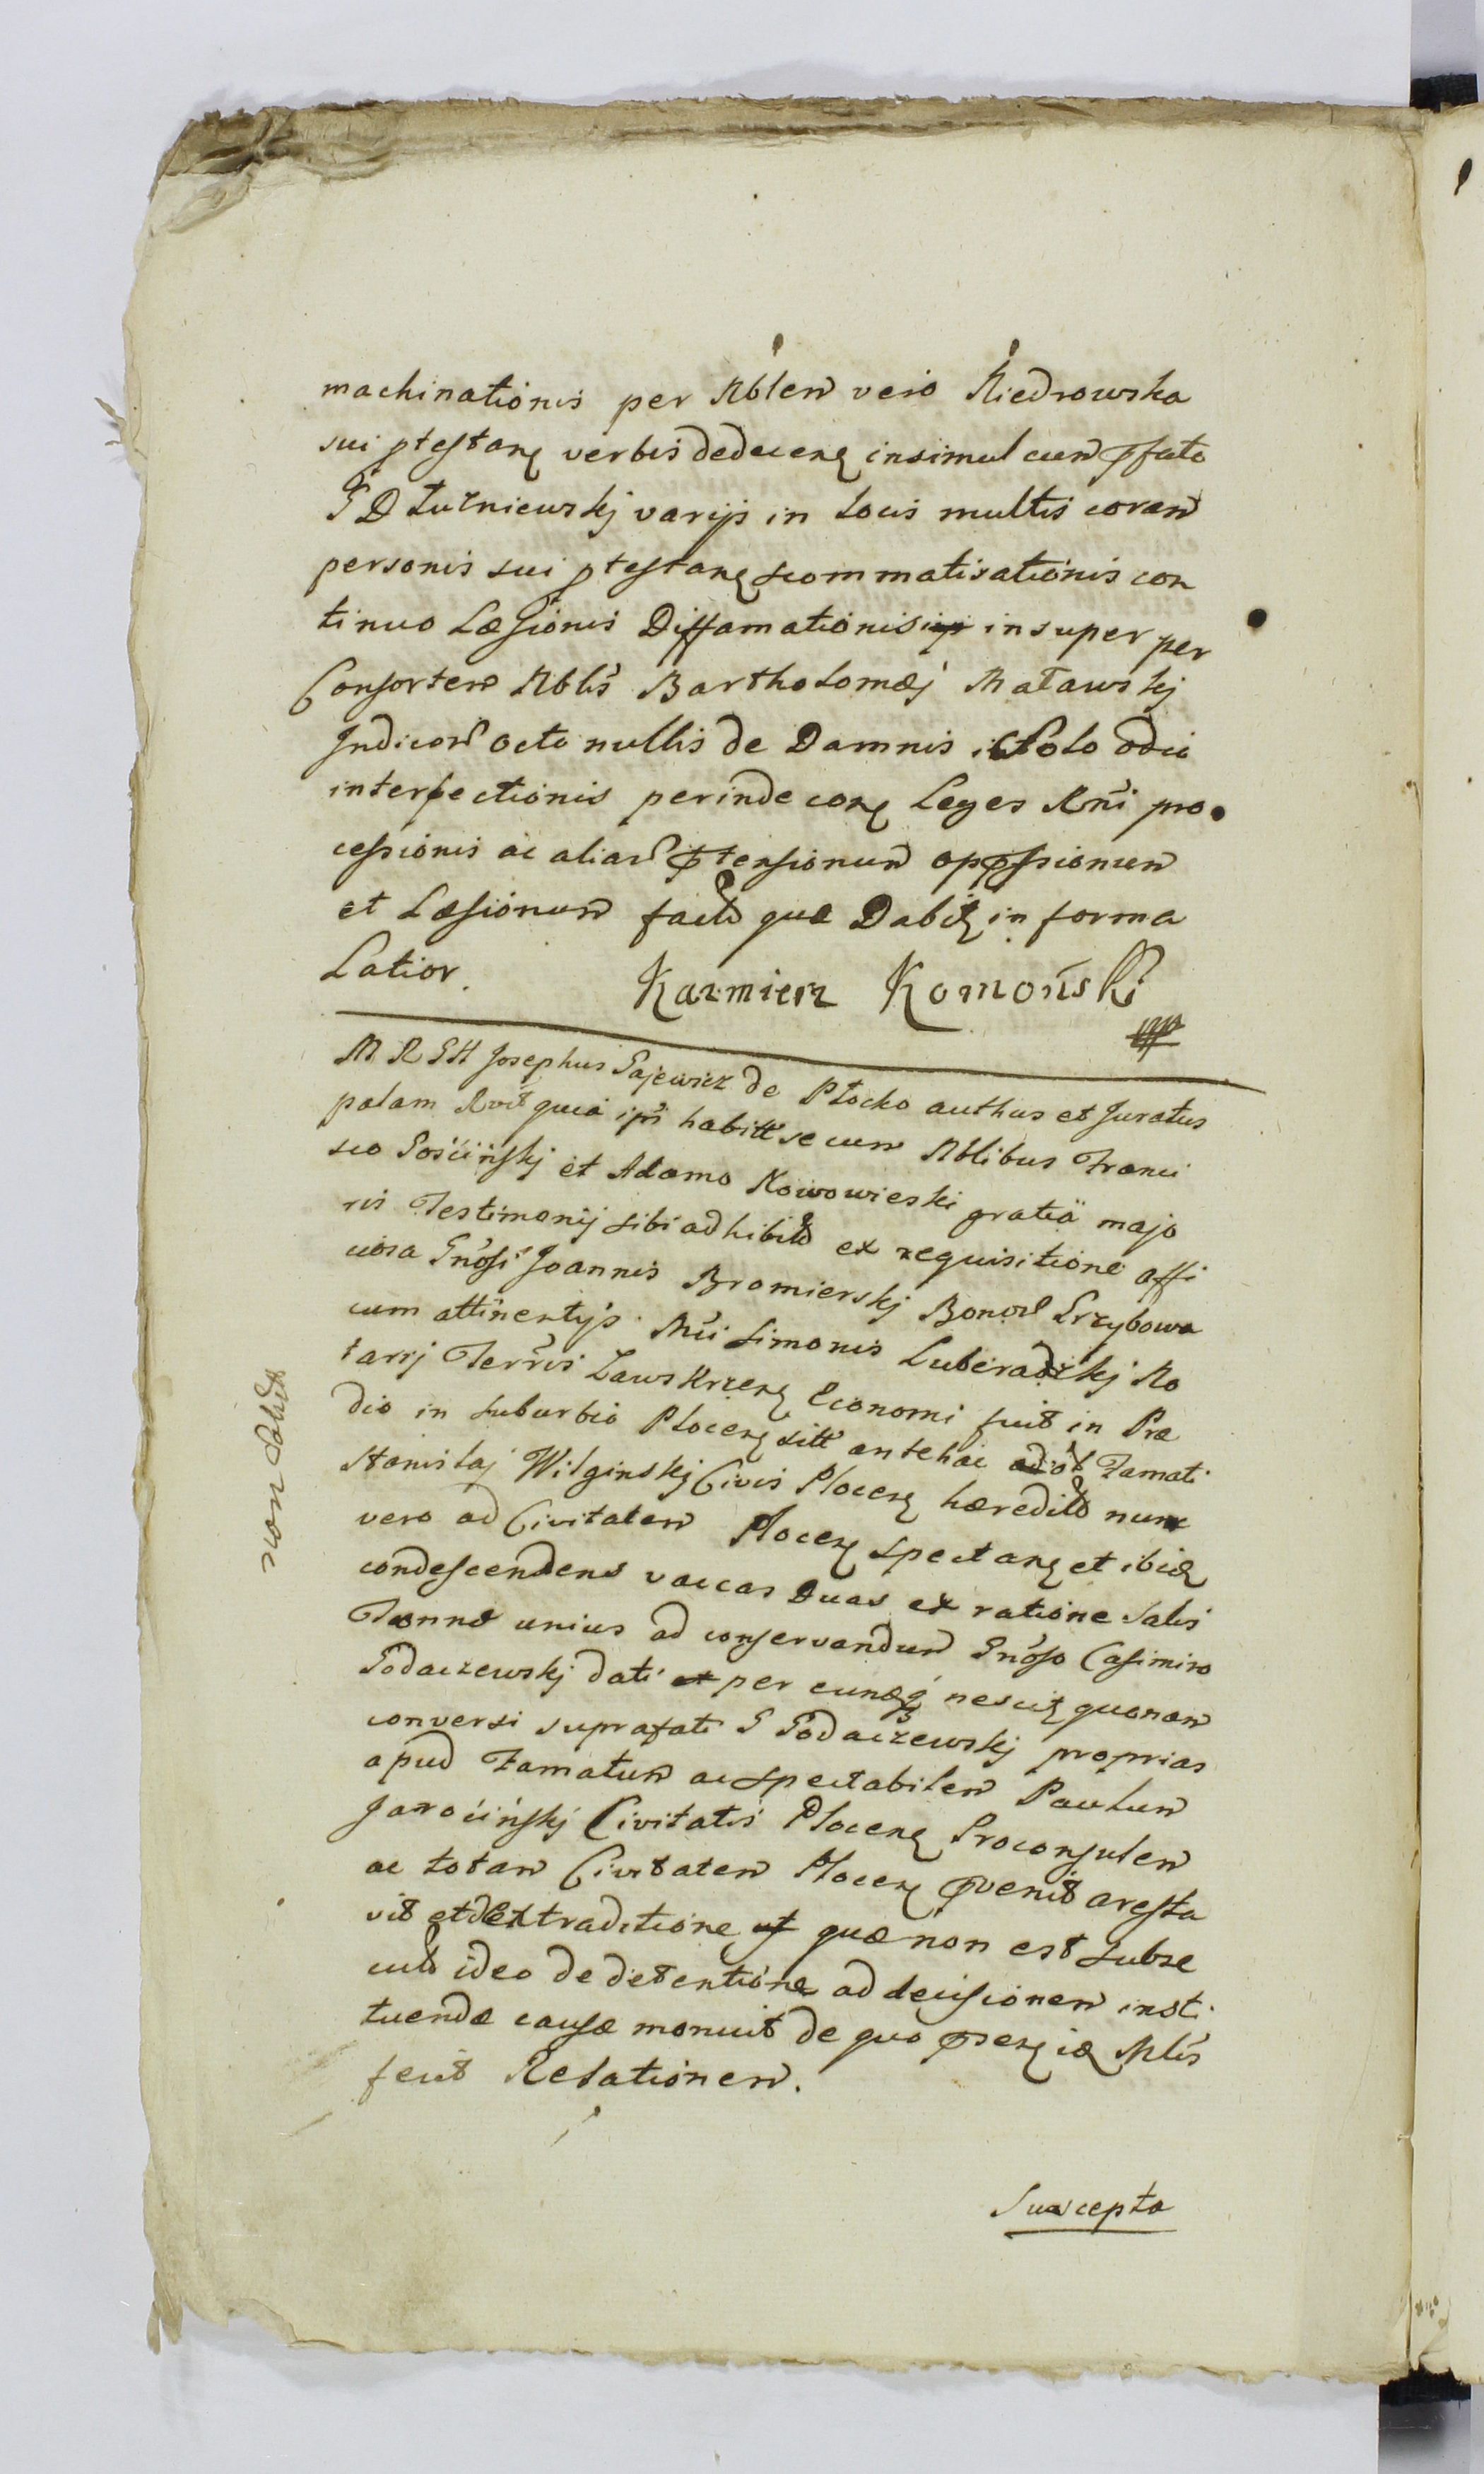 machinationis per Nblem vero Niedrowska
sui ptestans verbis dedecens insimul cum pfato
G D Łuzniewskj varijs in Locis multis coram
personis sui ptestans scommatisationis con
tinuo Læsionis Diffamationis insuper per
Consortem Nblis Bartholomæj Maławskj
Indicor octo nullis de Damnis Solo odio
interfectionis perinde cons Leges Rni pro
cessionis ac aliar ptensionum oppssionum
et Læsionum fact quæ Dabit in forma
Latior. Kazmierz Komoński
M R G H Josephus Gajewicz de Płocko authus et Juratus
palam Rvit quia ipse habitt secum Nblibus Franci
sco Gościńskj et Adamo Nowowieski gratiä majo
ris Testimonij sibi adhibit ex requisitione offi
ciosa Gnosi Joannis Bromierskj Bonor Grzybowo
cum attinentijs Mci Simonis Luberadzkj No
tarij Terris Zawskrzens Economi fuit in Præ
dio in suburbio Plocens sitt antehac Famati
Stanislaj Wilginskj Civis Plocens hæredit nunc
vero ad Civitatem Plocens spectans et ibid
condescendens vaccas Duas ex ratione Salis
Tonnæ unius ad conservandum Gnoso Casimiro
Godaczewskj dati per eundq nescit quonam
conversi suprafati G Godaczewskj proprias
apud Famatum ac Spectabilem Paulum
Jarocińskj Civitatis Plocens Proconsulem
ac totam Civitatem Plocens pvenit aresta
vit et de Extraditione quæ non est subse
cut ideo de detentione ad decisionem insti
tuendæ causæ monuit de quo psens id Mlis
fecit Relationem.
Suscepta
non solvit